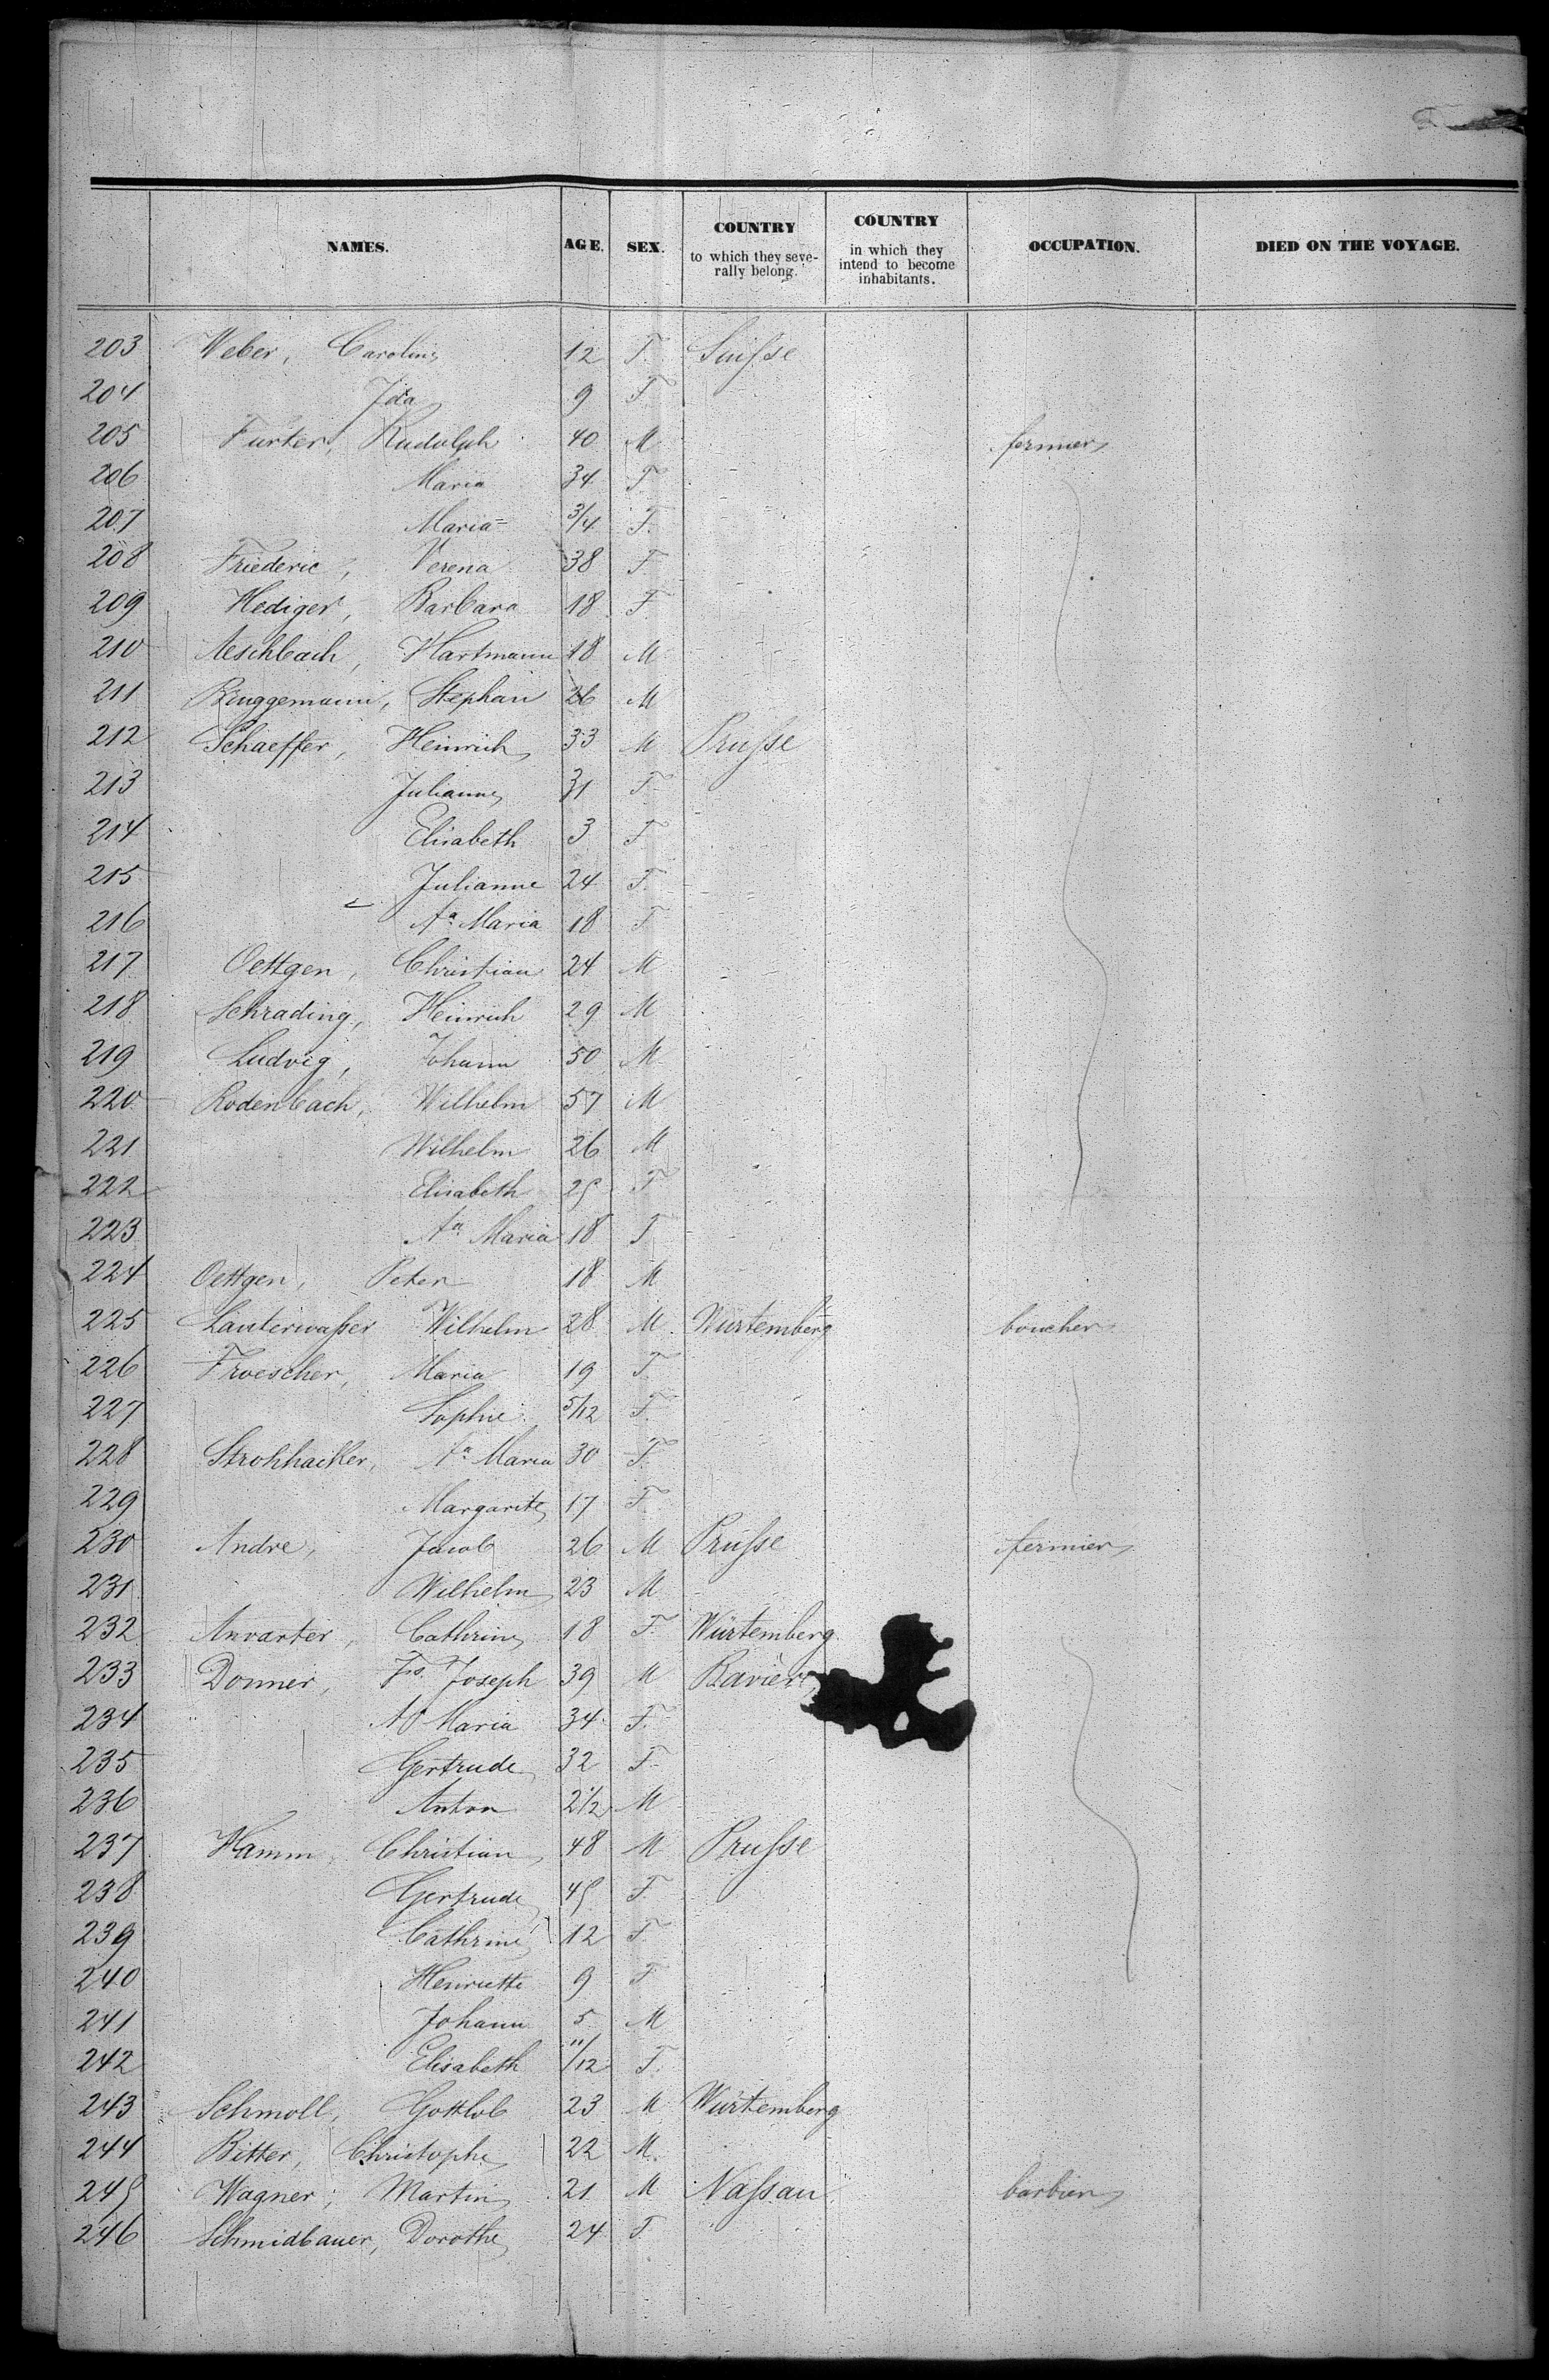 NAMES. AGE. SEX. COUNTRY to which they severally belong. COUNTRY in which they intend to become inhabitants. OCCUPATION. DIED ON THE VOYAGE.
203 Weber, Caroline 12 F. Suisse
204 Ida 9 F
205 Furter, Rudolph 40 M fermier
206 Maria 34 F
207 Maria 3/4 F.
208 Friederic, Verena 38 F
209 Hediger, Barbara 18 F
210 Aeschbach, Hartmann 18 M
211 Bruggemann, Stephan 26 M
212 Schaeffer, Heinrich 33 M Prusse
213 Julianne 31 F
214 Elisabeth 3 F
215 Julianne 24 F.
216 Aa Maria 18 F
217 Oettgen, Christian 24 M
218 Schrading, Heinrich 29 M
219 Ludvig, Johann 50 M
220 Rodenbach, Wilhelm 57 M
221 Wilhelm 26 M
222 Elisabeth 25 F
223 Aa Maria 18 F
224 Oettgen, Peter 18 M
225 Lauterwasser Wilhelm 28 M Würtemberg boucher
226 Froescher, Maria 19 F
227 Sophie 5/12 F.
228 Strohhacker, Aa Maria 30 F.
229 Margarite 17 F
230 Andre, Jacob 26 M Prusse fermier
231 Wilhelm 23 M
232 Anvarter, Cathrine 18 F Würtemberg
233 Donner, Fs. Joseph 39 M Bavière
234 Maria 34 F.
235 Gertrude 32 F
236 Anton 2 1/2 M
237 Hamm, Christian 48 M Prusse
238 Gertrude 45 F
239 Cathrine 12 F
240 Henriette 9 F
241 Johann 5 M
242 Elisabeth 11/12 F.
243 Schmoll, Gottlob 23 M Würtemberg
244 Bitter, Christophe 22 M.
245 Wagner, Martin 21 M Nassau barbier
246 Schmidbauer, Dorothe 24 F